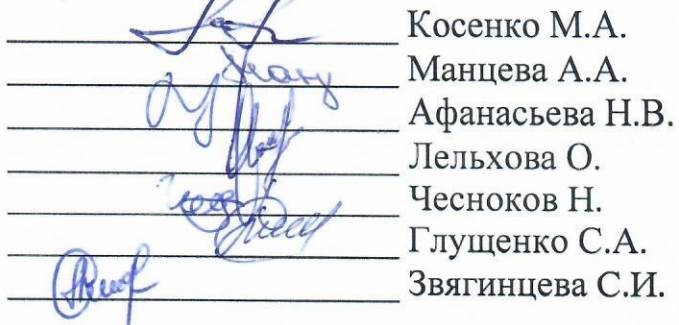 Косенко М.А.
Манцева А.А.
Афанасьева Н.В.
Лельхова О.
Чесноков Н.
Глущенко С.А.
Звягинцева С.И.